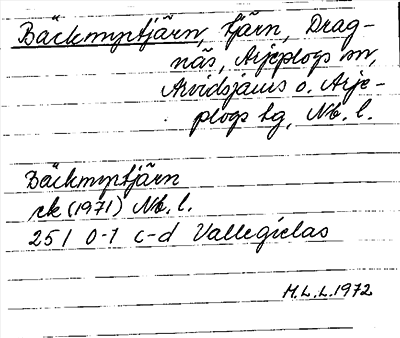 Bäckmyrtjärn, tjärn, Drag-
näs, Arjeplogs sn,
Arvidsjaurs o. Arje-
plogs tg, Nb. l.
Bäckmyrtjärn
rk (1971) Nb. l.
25 I 0-1 c-d Vallegielas
M.L.L. 1972